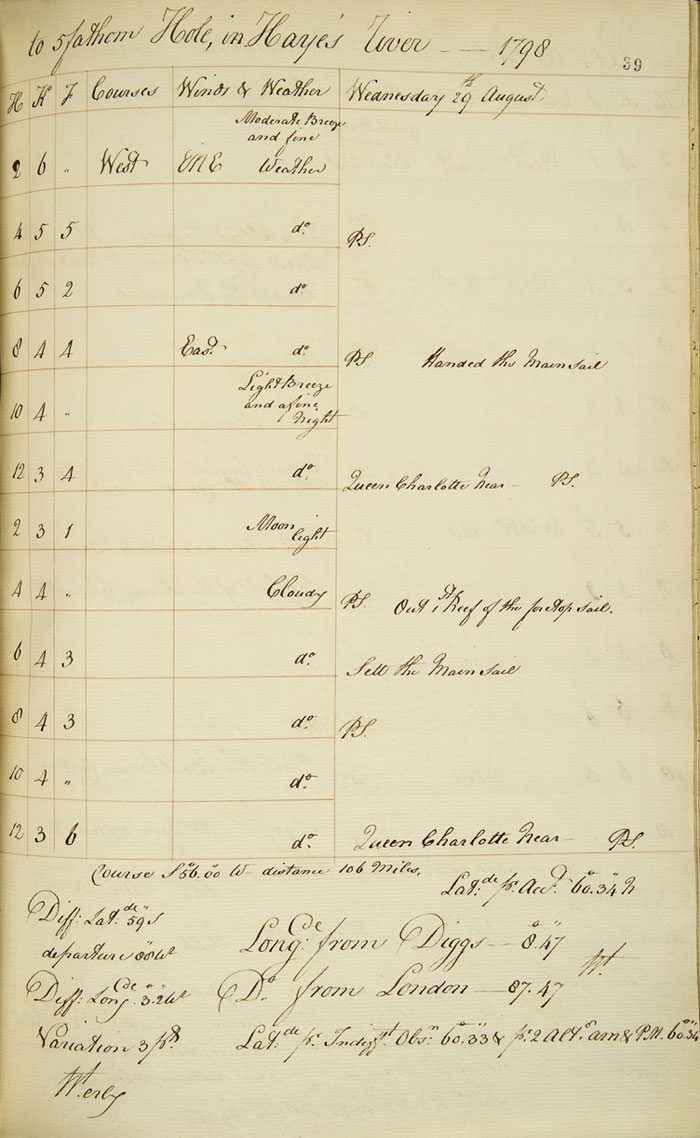 to 5 fathom Hole, in Haye's River — — 1798
39
H K F Courses Winds & Weather Wednesday 29th August
Moderate Breeze
and fine
2 6 " West ENE Weather
4 5 5 do PS.
6 5 2 do
8 4 4 East do PS Handed the Main sail
Light Breeze
and a fine
10 4 " Night
12 3 4 do Queen Charlotte Near — PS.
2 3 1 Moon
light
4 4 " Cloudy PS. Out 1st Reef of the foretop sail.
6 4 3 do Sett the Main sail
8 4 3 do PS.
10 4 " do
12 3 6 do Queen Charlotte Near — PS.
Course S 56.00 W distance 106 Miles,
Lat:de pr. Acct. 60.34 N
Diff: Lat:de 59 S
departure 88 Wt
Long:de from Diggs — 8.47
Diff: Long:de 3.2 Wt Do from London — 87.47 Wt
Variation 3 pts. Lat:de pr. Indifft. Obsn. 60.33 & pr. 2 Alts. am & P.M. 60.34
Werly